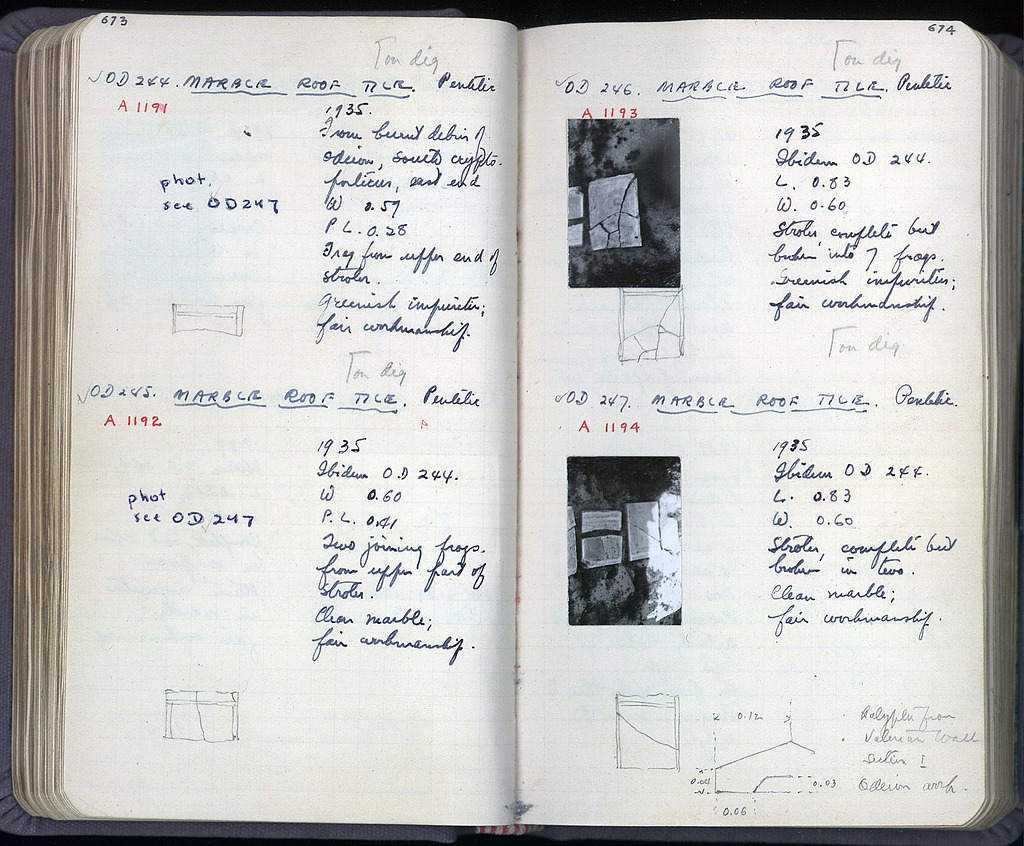 673
Ton dig
✓OD 244. MARBLE ROOF TILE. Pentelic
A 1191
1935.
From burnt debris of
Odeion, South crypto-
porticus, east end
phot.
see OD 247
W 0.59
P L. 0.28
Frag from upper end of
stroter.
Greenish impurities;
fair workmanship.
Ton dig
✓OD 245. MARBLE ROOF TILE. Pentelic
A 1192
A
1935
Ibidem OD 244.
W 0.60
P. L. 0.41
phot
see OD 247
Two joining frags.
from upper part of
stroter.
Clean marble;
fair workmanship.
674
Ton dig
✓OD 246. MARBLE ROOF TILE. Pentelic
A 1193
1935
Ibidem OD 244.
L. 0.83
W. 0.60
Stroter, complete but
broken into 7 frags.
Greenish impurities;
fair workmanship.
Ton dig
✓OD 247. MARBLE ROOF TILE. Pentelic.
A 1194
1935
Ibidem OD 244.
L. 0.83
W. 0.60
Stroter, complete but
broken in two.
Clean marble;
fair workmanship.
0.12
Kalypter from
Valerian Wall
Section I
Odeion work.
0.04
0.03
0.06